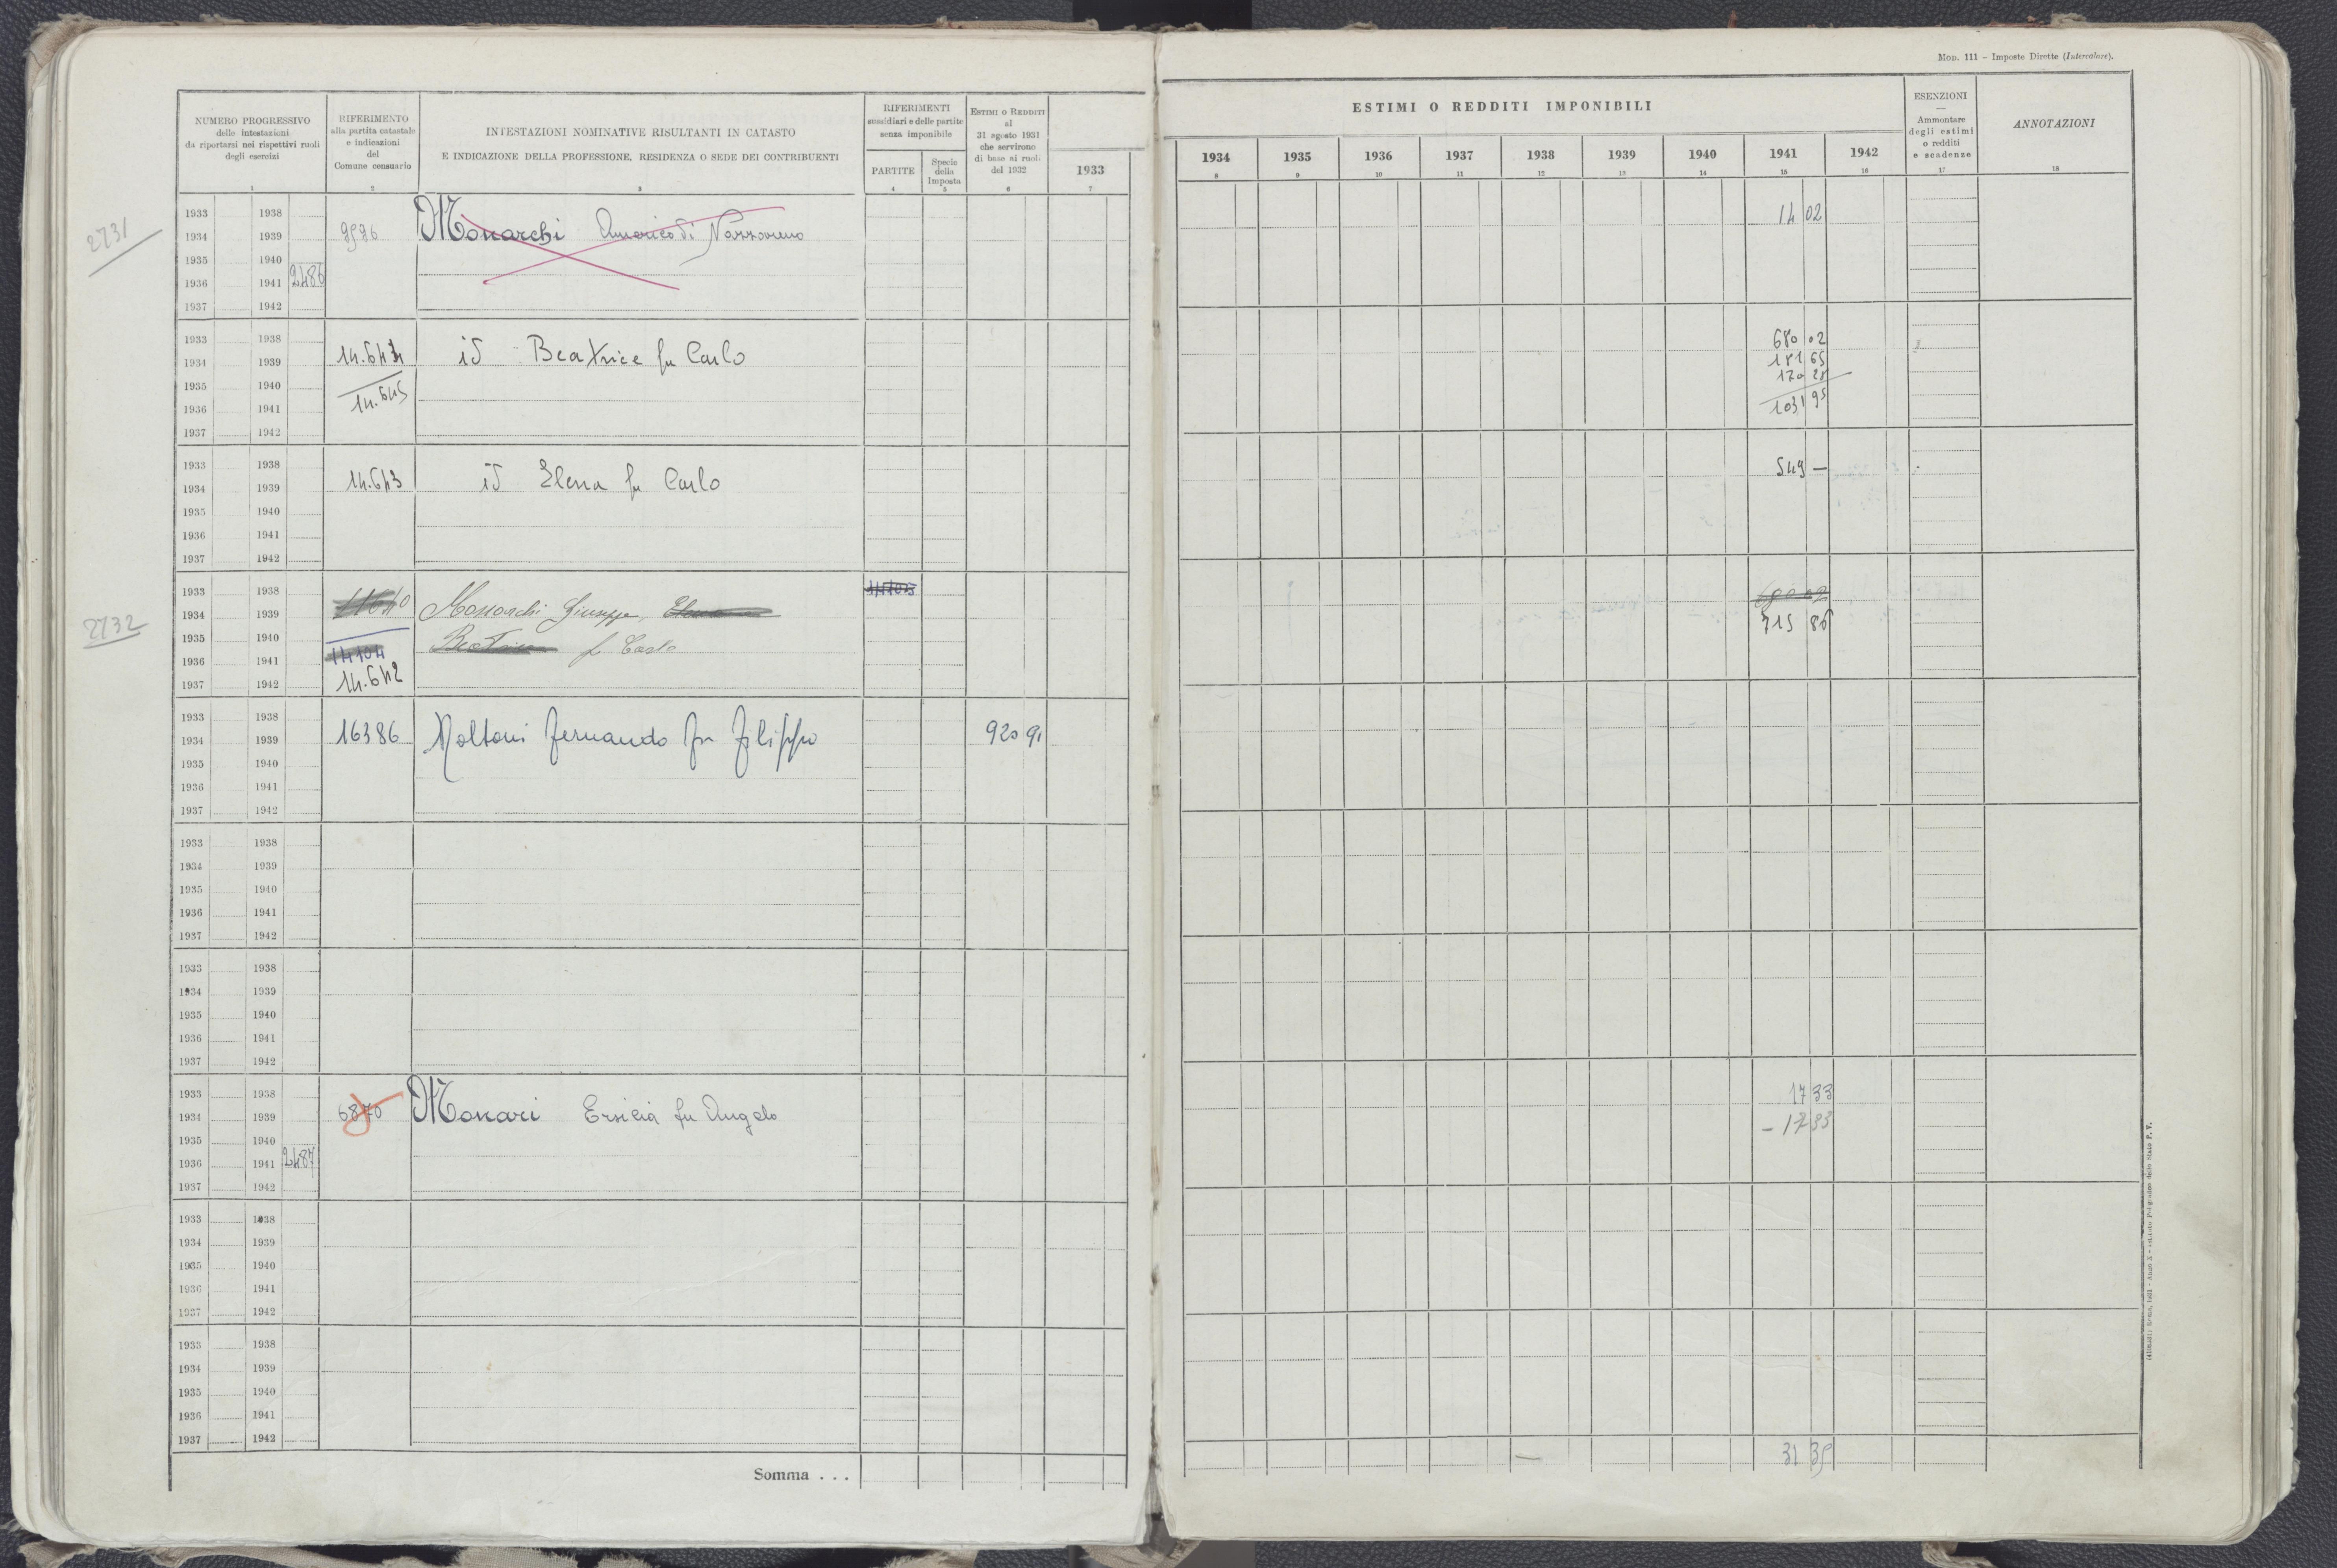 Mod. 111 – Imposte Dirette (Intercalare).
NUMERO PROGRESSIVO
delle intestazioni
da riportarsi nei rispettivi ruoli
degli esercizi
1
RIFERIMENTO
alla partita catastale
e indicazioni
del
Comune censuario
2
INTESTAZIONI NOMINATIVE RISULTANTI IN CATASTO
E INDICAZIONE DELLA PROFESSIONE, RESIDENZA O SEDE DEI CONTRIBUENTI
3
RIFERIMENTI
sussidiari e delle partite
senza imponibile
PARTITE
4
Specie
della
Imposta
5
ESTIMI O REDDITI
al
31 agosto 1931
che servirono
di base ai ruoli
del 1932
6
1933
7
ESTIMI O REDDITI IMPONIBILI
1934 1935 1936 1937 1938 1939 1940 1941 1942
8 9 10 11 12 13 14 15 16
ESENZIONI
—
Ammontare
degli estimi
o redditi
e scadenze
17
ANNOTAZIONI
18
2731
1933 1938 14 02
1934 1939 9596 Monarchi Americo di Nazzareno
1935 1940
1936 1941 2486
1937 1942
1933 1938 680 02
1934 1939 14.644 id Beatrice fu Carlo 181 65
1935 1940 14.645 170 28
1936 1941 1031 95
1937 1942
1933 1938 549 —
1934 1939 14.643 id Elena fu Carlo
1935 1940
1936 1941
1937 1942
2732
1933 1938 680 02
1934 1939 11640 Monarchi Giuseppe, Elena 715 86
1935 1940 Beatrice fu Carlo
1936 1941 14104
1937 1942 14.642
1933 1938
1934 1939 16386 Moltoni Fernando fu Filippo 920 91
1935 1940
1936 1941
1937 1942
1933 1938
1934 1939
1935 1940
1936 1941
1937 1942
1933 1938
1934 1939
1935 1940
1936 1941
1937 1942
1933 1938 17 33
1934 1939 6870 Monari Ersilia fu Angelo – 17 33
1935 1940
1936 1941 2487
1937 1942
1933 1938
1934 1939
1935 1940
1936 1941
1937 1942
1933 1938
1934 1939
1935 1940
1936 1941
1937 1942
Somma . . . — 31 35